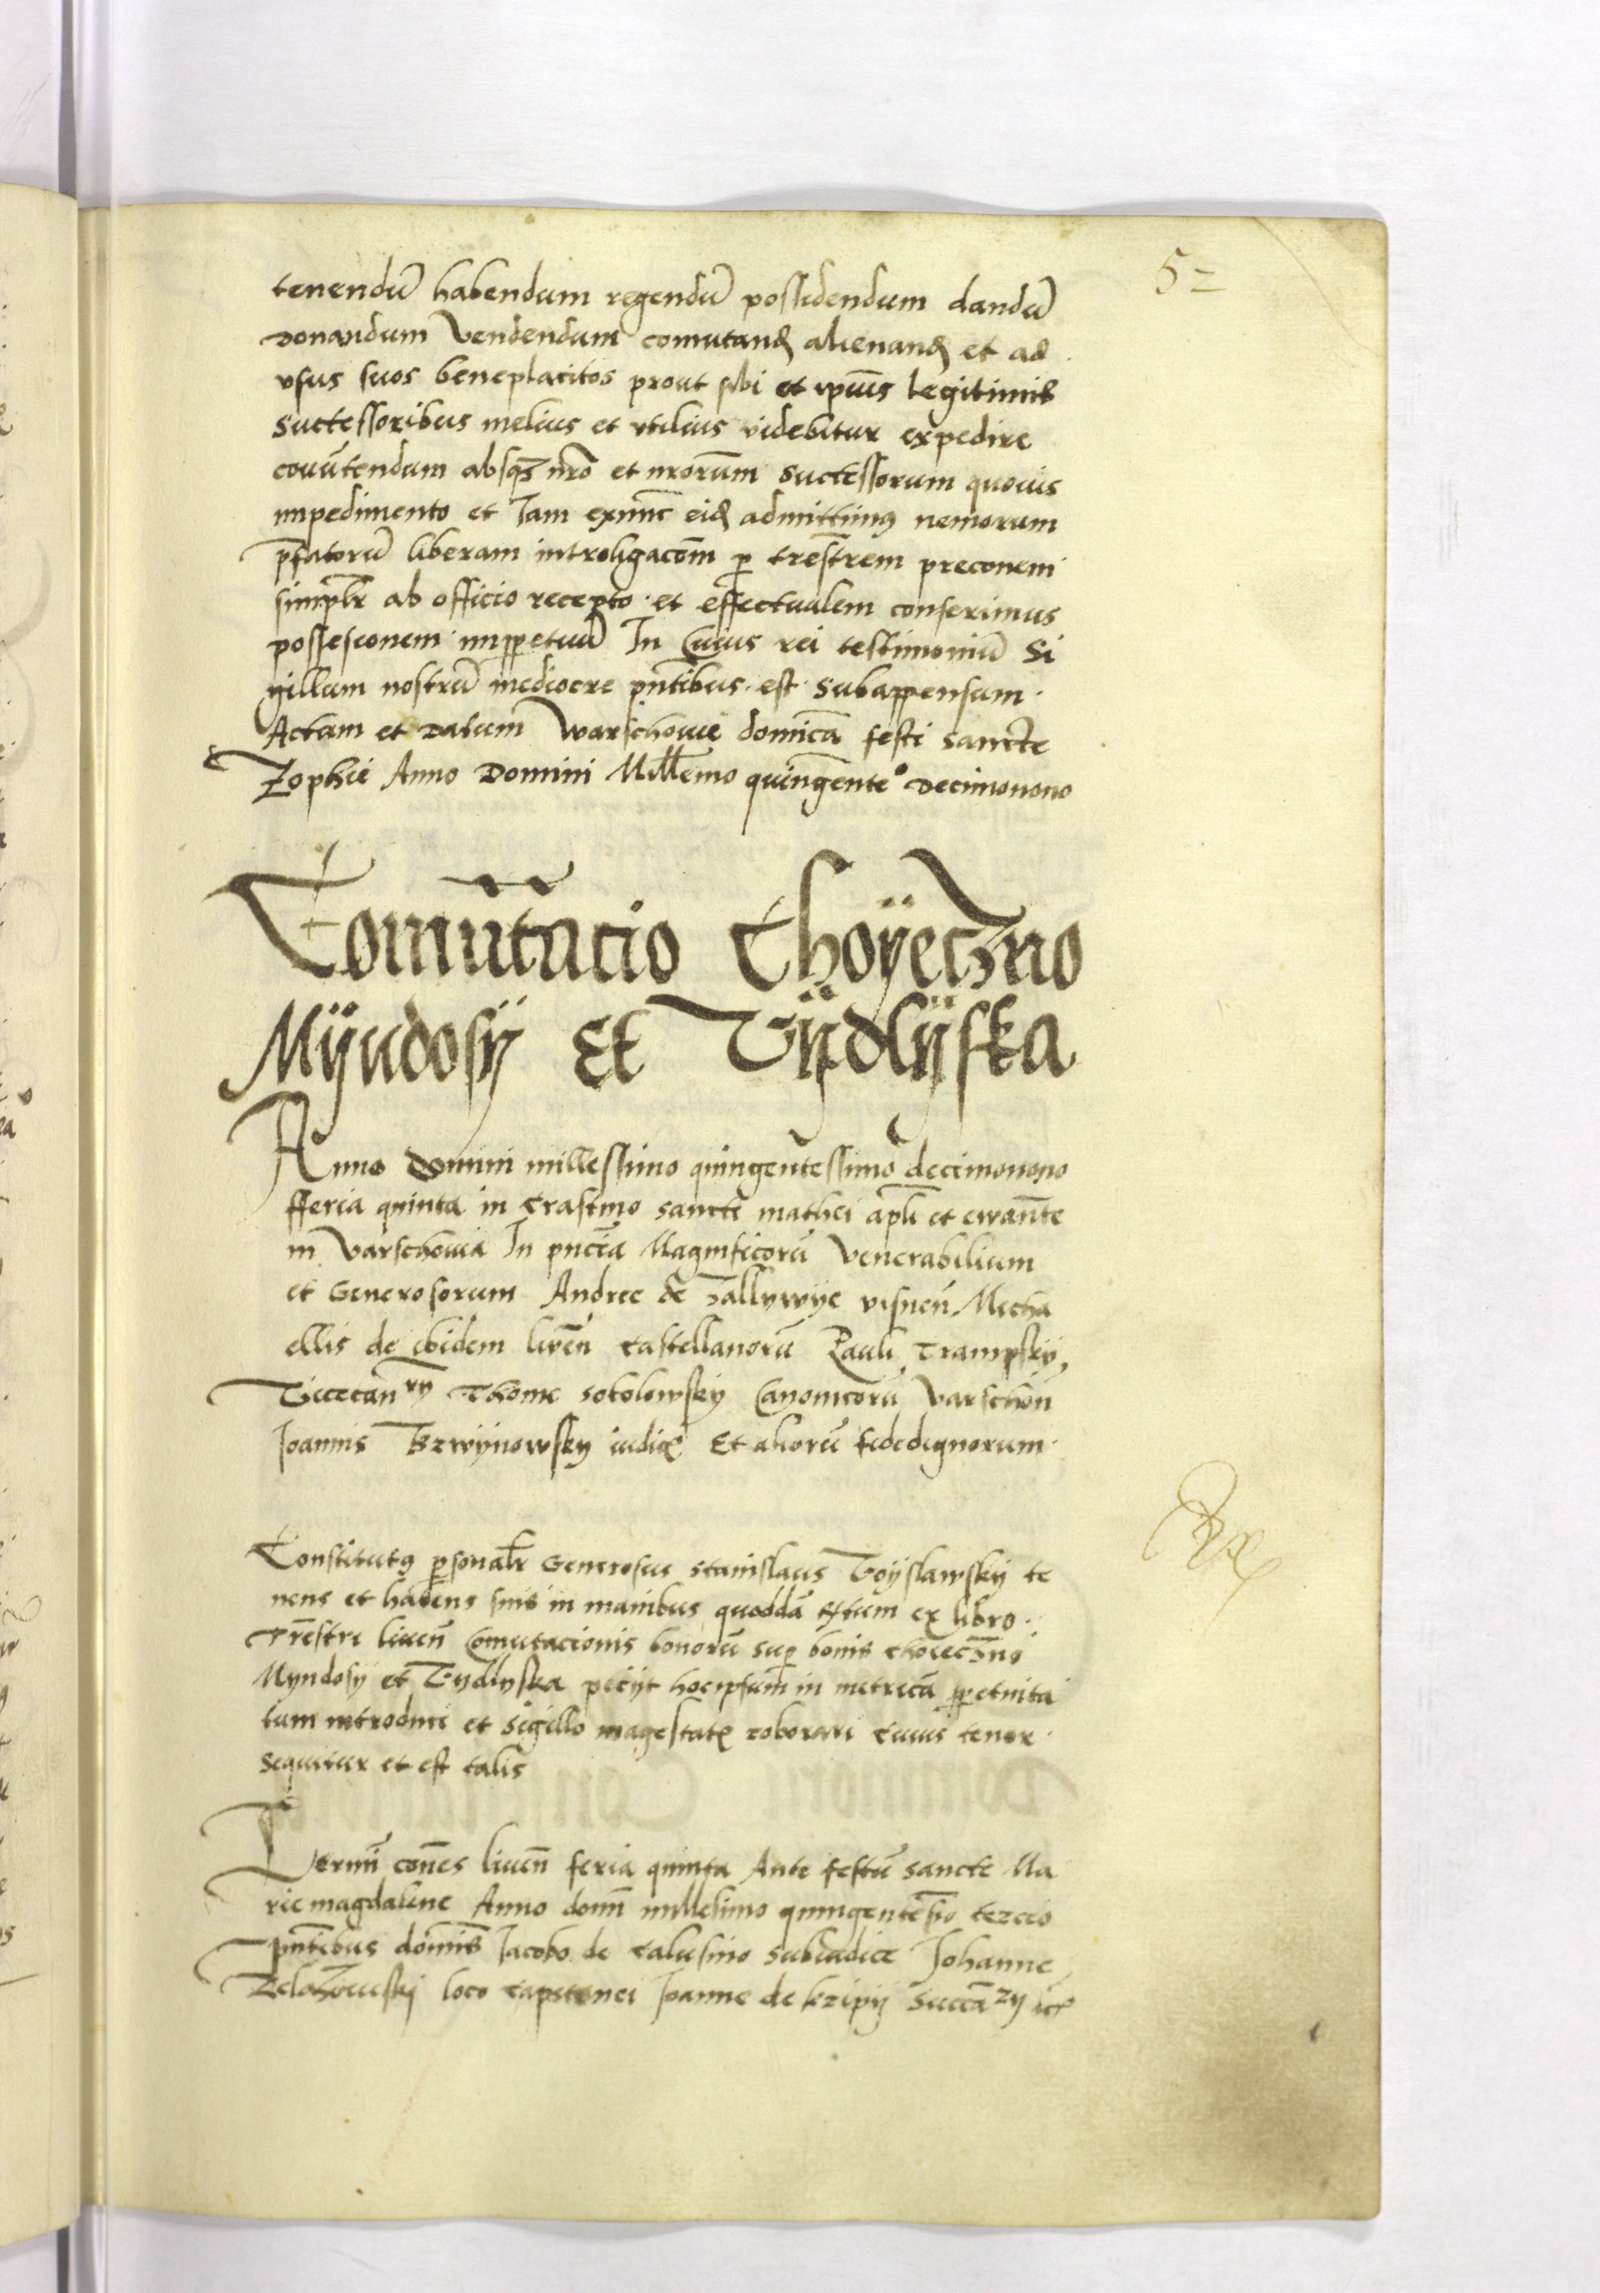 5=
tenendū habendum regendū possidendum dandū
Donandum Vendendum comutand alienand et ad
vsus suos beneplacitos prout sibi et ipius legitimis
Successoribus melius et vtilius videbitur expedire
covūtendum absqz nro et nrorum Successorum quouis
impedimento et Iam exnunc eid admittimus nemorum
pfatorū liberam introligacom p trestrem preconem
simplr ab officio recepto et effectualem conferimus
possesionem imppetuū In Cuius rei testimoniū Si
gillum nostrū mediocre pntibus est Subappensum
Actum et Datum Warschouie domica festi Sancte
Zophie Anno Domini Millemo quingente° Decimonono
Comutacio Choyeczno
Myndosy Et Vydlyska
Anno Domini millessimo quingentessimo decimonono
fferia quinta in Crastino Sancti mathei apli et ewante
in Varschouia In pncia Magnificorū Venerabilium
et Generosorum Andree de Zallywye visnen Micha
ellis de ibidem liven Castellanorū Pauli Trampsky
Vicecan ry Thome Sokolowsky Canonicorū Varschon
Joannis Brwynowsky iudic Et aliorū fidedignorum
Constitutus psonalr Generosus Stanislaus Voyslawsky te
nens et habens suis in manibus quoddā extum ex libro
Trestri liuen Comutacionis bonorū sup bonis Choieczno
Myndosy et Vydlyska peciyt hocipsum in metricā ppetuita
tum introduci et Sigillo magestatis roborari Cuius tenor
Sequitur et est talis
Termi cones liuen feria quinta Ante festū Sancte Ma
rie magdalene Anno domi millesimo quingentesio tercio
pntibus domis Jacobo de Calusino Subiudice Johanne
loco Capitanei Joanne de kripy Succa ry